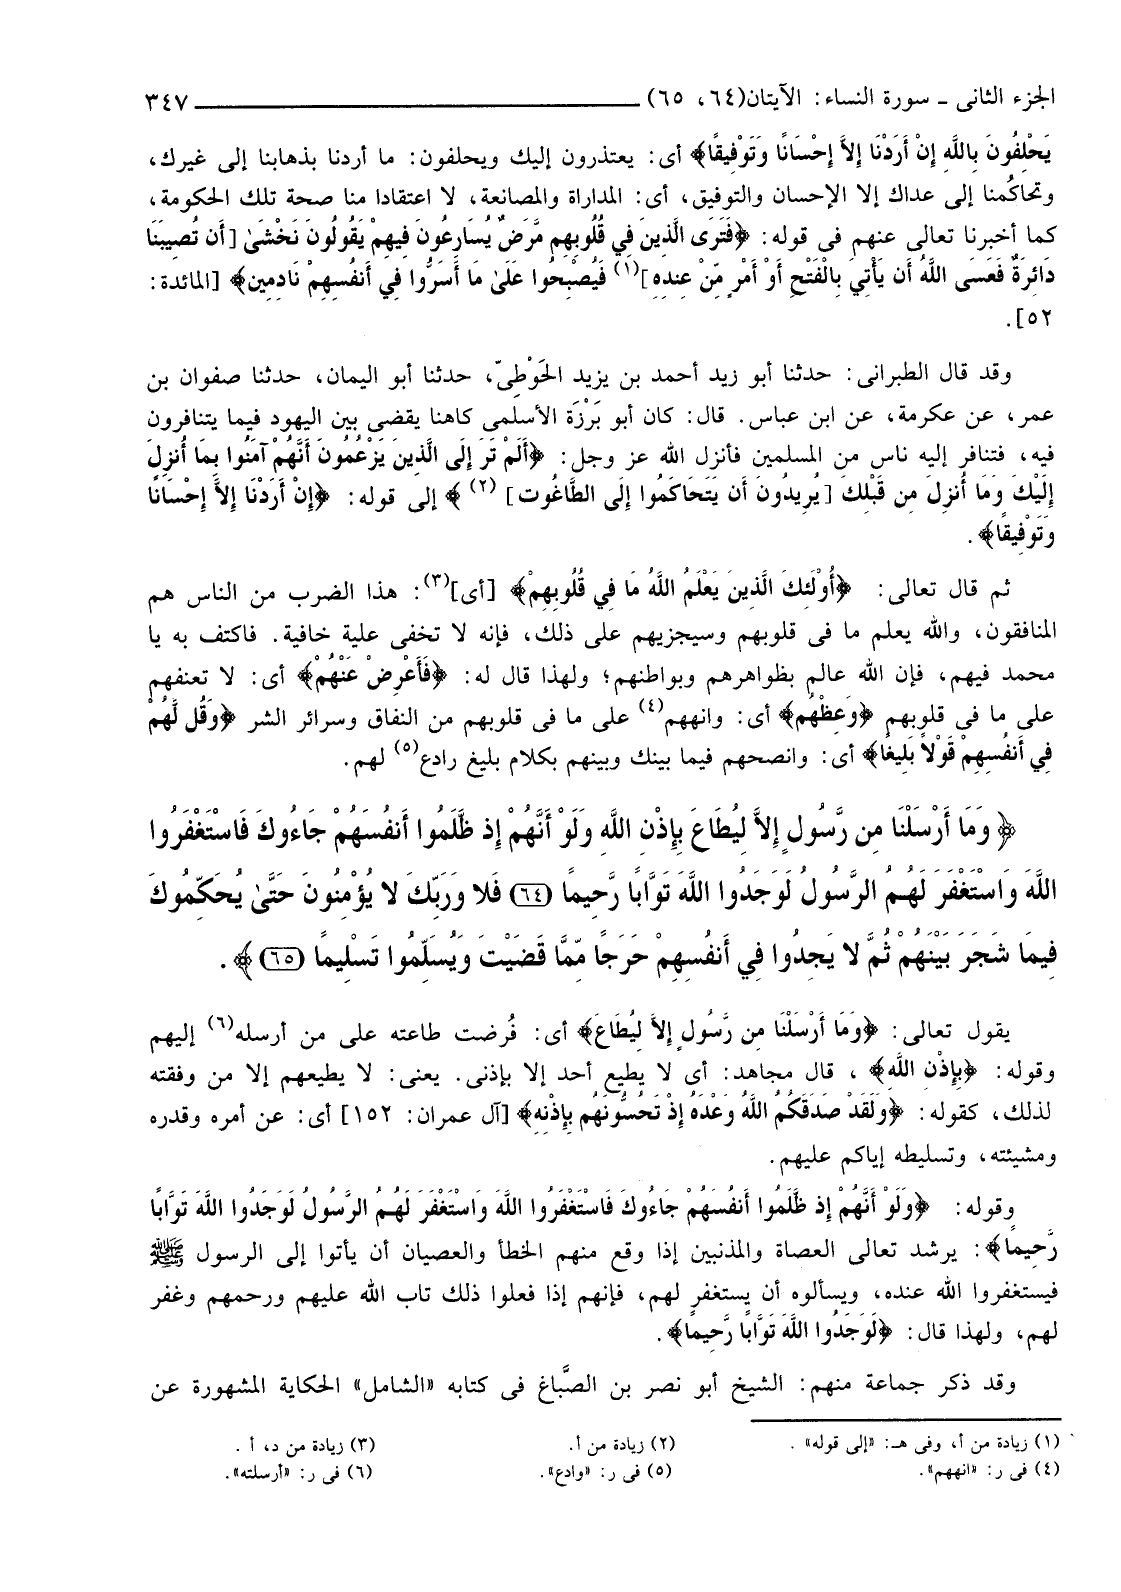 الجزء الثانى ـ سورة النساء: الآيتان(٦٤، ٦٥) ٣٤٧
يَحْلِفُونَ بِاللَّهِ إِنْ أَرَدْنَا إِلاَّ إِحْسَانًا وَتَوْفِيقًا﴾ أى: يعتذرون إليك ويحلفون: ما أردنا بذهابنا إلى غيرك،
وتحاكُمنا إلى عداك إلا الإحسان والتوفيق، أى: المداراة والمصانعة، لا اعتقادا منا صحة تلك الحكومة،
كما أخبرنا تعالى عنهم فى قوله: ﴿فَتَرَى الَّذِينَ فِي قُلُوبِهِم مَّرَضٌ يُسَارِعُونَ فِيهِمْ يَقُولُونَ نَخْشَىٰ [أَن تُصِيبَنَا
دَائِرَةٌ فَعَسَى اللَّهُ أَن يَأْتِيَ بِالْفَتْحِ أَوْ أَمْرٍ مِّنْ عِندِهِ](١) فَيُصْبِحُوا عَلَىٰ مَا أَسَرُّوا فِي أَنفُسِهِمْ نَادِمِين﴾ [المائدة:
٥٢].
وقد قال الطبرانى: حدثنا أبو زيد أحمد بن يزيد الحَوْطِىّ، حدثنا أبو اليمان، حدثنا صفوان بن
عمر، عن عكرمة، عن ابن عباس. قال: كان أبو بَرْزَة الأسلمى كاهنا يقضى بين اليهود فيما يتنافرون
فيه، فتنافر إليه ناس من المسلمين فأنزل الله عز وجل: ﴿أَلَمْ تَرَ إِلَى الَّذِينَ يَزْعُمُونَ أَنَّهُمْ آمَنُوا بِمَا أُنزِلَ
إِلَيْكَ وَمَا أُنزِلَ مِن قَبْلِكَ [يُرِيدُونَ أَن يَتَحَاكَمُوا إِلَى الطَّاغُوت] (٢) ﴾ إلى قوله: ﴿إِنْ أَرَدْنَا إِلاَّ إِحْسَانًا
وَتَوْفِيقًا﴾.
ثم قال تعالى: ﴿أُوْلَئِكَ الَّذِينَ يَعْلَمُ اللَّهُ مَا فِي قُلُوبِهِمْ﴾ [أى](٣): هذا الضرب من الناس هم
المنافقون، والله يعلم ما فى قلوبهم وسيجزيهم على ذلك، فإنه لا تخفى علية خافية. فاكتف به يا
محمد فيهم، فإن الله عالم بظواهرهم وبواطنهم؛ ولهذا قال له: ﴿فَأَعْرِضْ عَنْهُمْ﴾ أى: لا تعنفهم
على ما فى قلوبهم ﴿وَعِظْهُم﴾ أى: وانههم(٤) على ما فى قلوبهم من النفاق وسرائر الشر ﴿وَقُل لَّهُمْ
فِي أَنفُسِهِمْ قَوْلاً بَلِيغًا﴾ أى: وانصحهم فيما بينك وبينهم بكلام بليغ رادع(٥) لهم.
﴿ وَمَا أَرْسَلْنَا مِن رَّسُولٍ إِلاَّ لِيُطَاعَ بِإِذْنِ اللَّهِ وَلَوْ أَنَّهُمْ إِذ ظَّلَمُوا أَنفُسَهُمْ جَاءُوكَ فَاسْتَغْفَرُوا
اللَّهَ وَاسْتَغْفَرَ لَهُمُ الرَّسُولُ لَوَجَدُوا اللَّهَ تَوَّابًا رَّحِيمًا (٦٤) فَلا وَرَبِّكَ لا يُؤْمِنُونَ حَتَّىٰ يُحَكِّمُوكَ
فِيمَا شَجَرَ بَيْنَهُمْ ثُمَّ لا يَجِدُوا فِي أَنفُسِهِمْ حَرَجًا مِّمَّا قَضَيْتَ وَيُسَلِّمُوا تَسْلِيمًا (٦٥) ﴾ .
يقول تعالى: ﴿وَمَا أَرْسَلْنَا مِن رَّسُولٍ إِلاَّ لِيُطَاعَ﴾ أى: فُرضت طاعته على من أرسله(٦) إليهم
وقوله: ﴿بِإِذْنِ اللَّهِ﴾ ، قال مجاهد: أى لا يطيع أحد إلا بإذنى. يعنى: لا يطيعهم إلا من وفقته
لذلك، كقوله: ﴿وَلَقَدْ صَدَقَكُمُ اللَّهُ وَعْدَهُ إِذْ تَحُسُّونَهُم بِإِذْنِهِ﴾ [آل عمران: ١٥٢] أى: عن أمره وقدره
ومشيئته، وتسليطه إياكم عليهم.
وقوله: ﴿وَلَوْ أَنَّهُمْ إِذ ظَّلَمُوا أَنفُسَهُمْ جَاءُوكَ فَاسْتَغْفَرُوا اللَّهَ وَاسْتَغْفَرَ لَهُمُ الرَّسُولُ لَوَجَدُوا اللَّهَ تَوَّابًا
رَّحِيمًا﴾: يرشد تعالى العصاة والمذنبين إذا وقع منهم الخطأ والعصيان أن يأتوا إلى الرسول ﷺ
فيستغفروا الله عنده، ويسألوه أن يستغفر لهم، فإنهم إذا فعلوا ذلك تاب الله عليهم ورحمهم وغفر
لهم، ولهذا قال: ﴿لَوَجَدُوا اللَّهَ تَوَّابًا رَّحِيمًا﴾.
وقد ذكر جماعة منهم: الشيخ أبو نصر بن الصَّباغ فى كتابه «الشامل» الحكاية المشهورة عن
(١) زيادة من أ، وفى هـ: «إلى قوله» . (٢) زيادة من أ. (٣) زيادة من د، أ .
(٤) فى ر: «انههم». (٥) فى ر: «وادع». (٦) فى ر: «أرسلته».